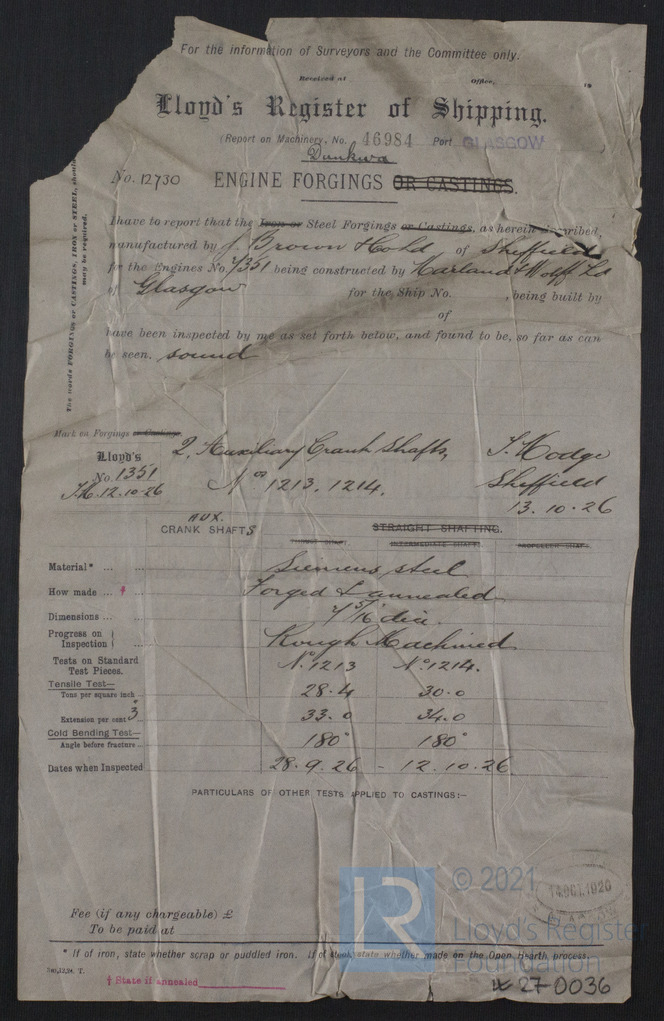 For the information of Surveyors and the Committee only.
Received at Office, 19
Lloyd's Register of Shipping.
(Report on Machinery, No. 46984 Port GLASGOW
Dunkwa
No. 12730 ENGINE FORGINGS OR CASTINGS.
The words FORGINGS or CASTINGS, IRON or STEEL, should
may be required.
I have to report that the Iron or Steel Forgings or Castings, as herein described,
manufactured by J. Brown & Co Ld of Sheffield
for the Engines No. 7351 being constructed by Harland & Wolff Ld
of Glasgow for the Ship No. , being built by
of
have been inspected by me as set forth below, and found to be, so far as can
be seen, sound
Mark on Forgings or Castings.
Lloyd's
No. 1351
J.H. 12.10.26
2, Auxiliary Crank Shafts,
Nos 1213, 1214.
J. Hodge
Sheffield
13.10.26
AUX.
CRANK SHAFTS
STRAIGHT SHAFTING.
THRUST SHAFT. INTERMEDIATE SHAFT. PROPELLER SHAFT.
Material* ... ... Siemens steel
How made ... † ... Forged & annealed
Dimensions ... ... 7 5/16" dia.
Progress on Inspection ... Rough Machined
Tests on Standard Test Pieces. No. 1213 No. 1214.
Tensile Test—
Tons per square inch ... 28.4 30.0
Extension per cent 3" ... 33.0 34.0
Cold Bending Test—
Angle before fracture ... 180° 180°
Dates when Inspected 28.9.26 - 12.10.26
PARTICULARS OF OTHER TESTS APPLIED TO CASTINGS:—
Fee (if any chargeable) £
To be paid at
14 OCT. 1926
* If of iron, state whether scrap or puddled iron. If of steel, state whether made on the Open Hearth process.
† State if annealed
© 2021
LR
Lloyd's Register
Foundation
LR 27-0036